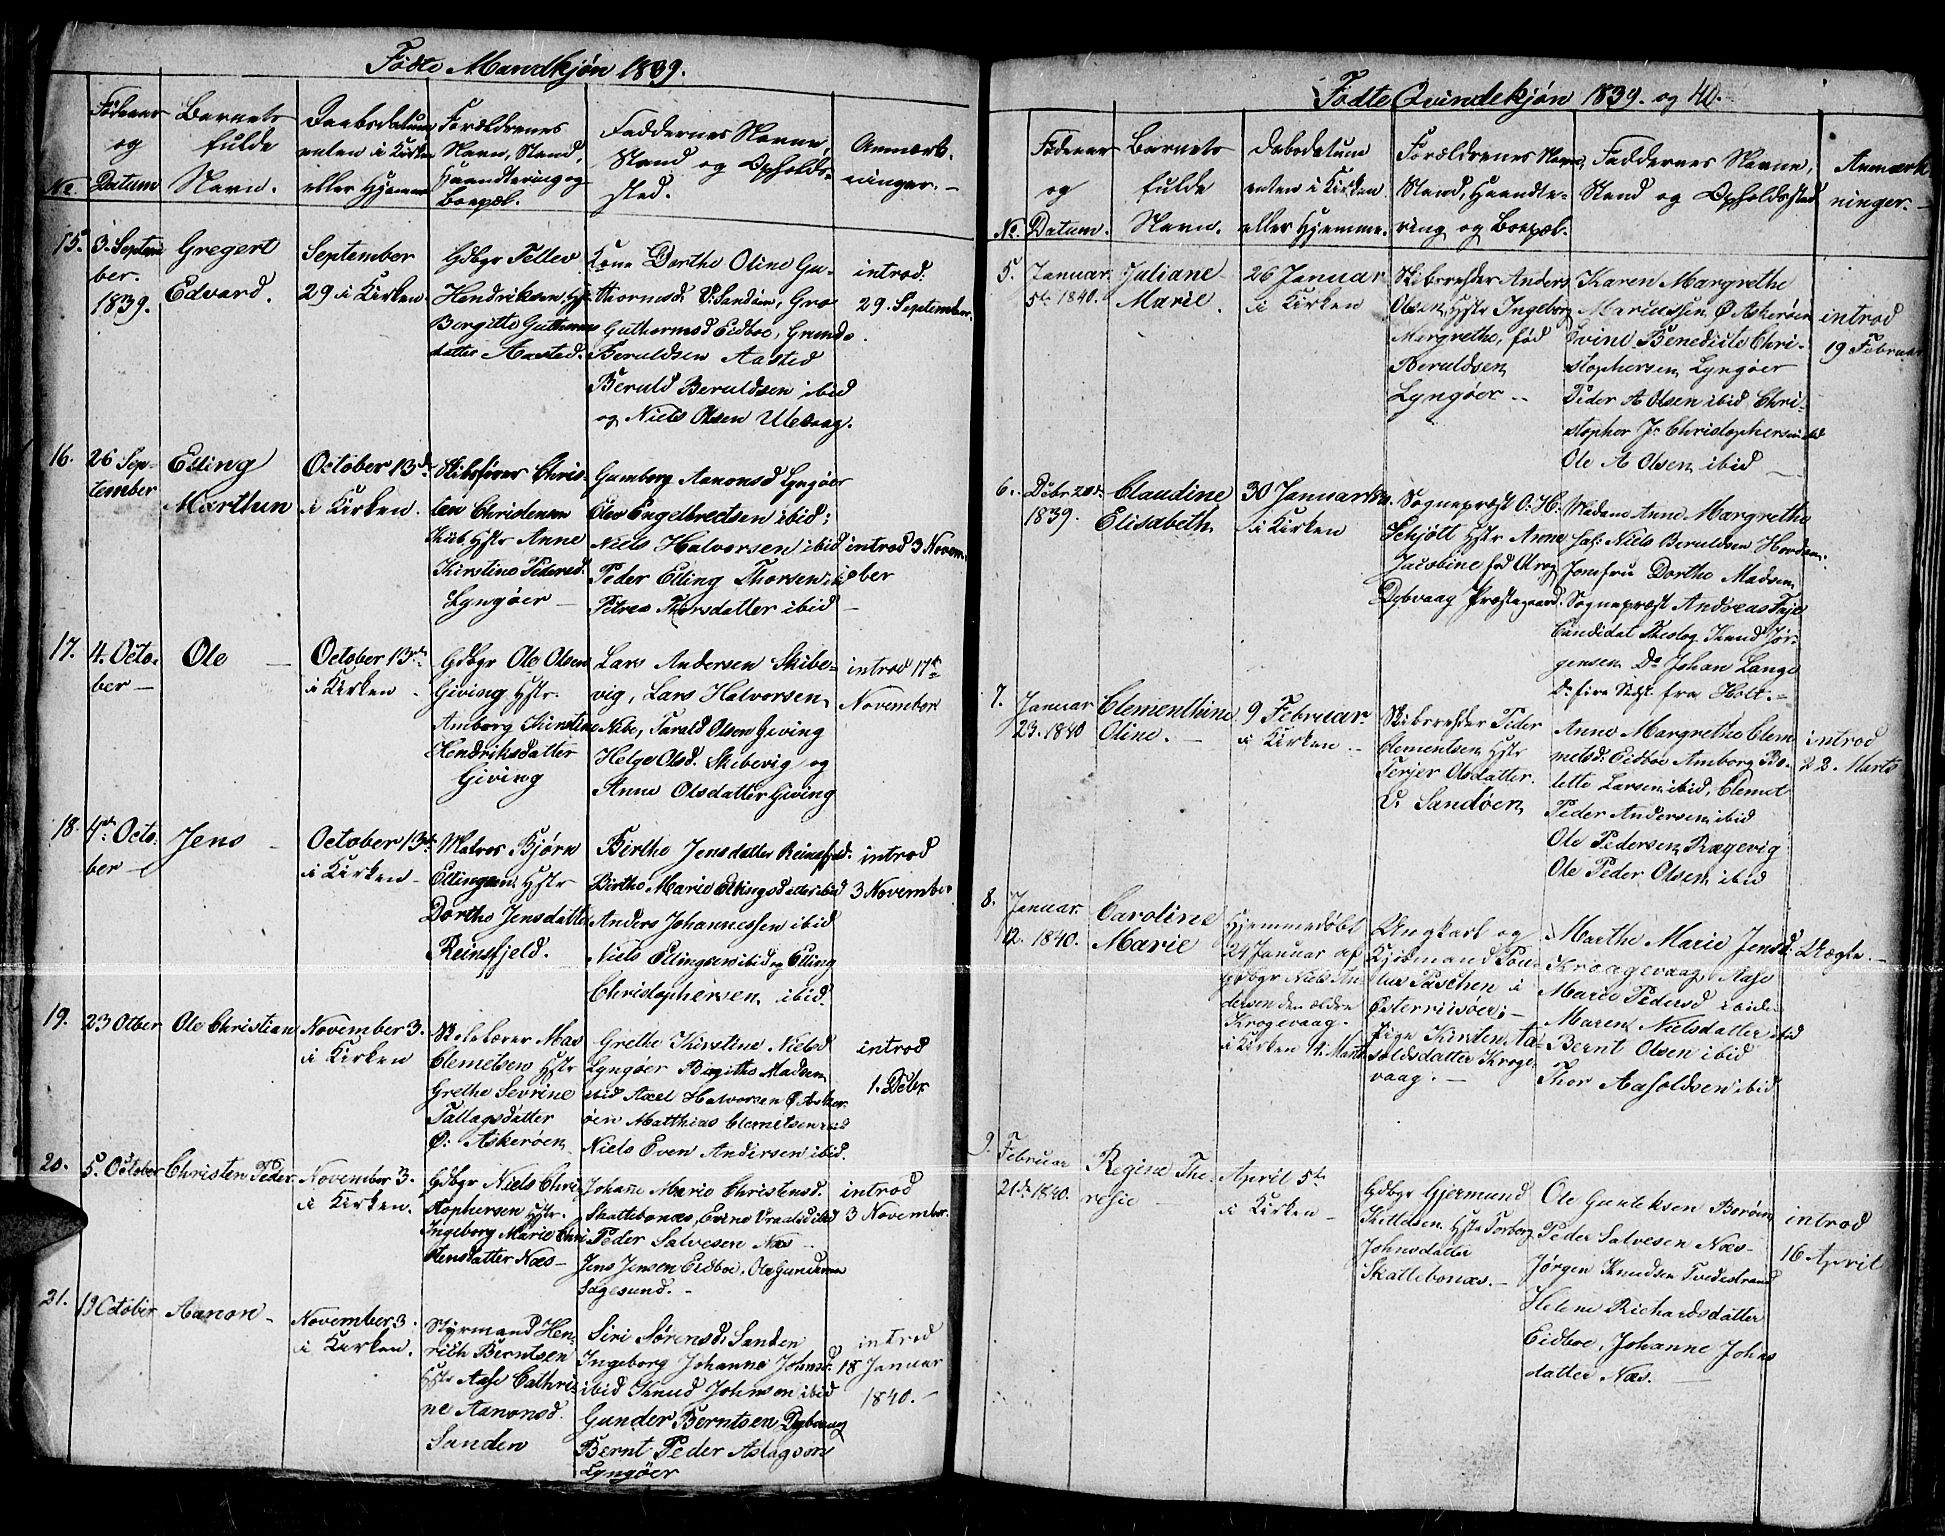 Fødte Mandkjøn 1839.
No.
Fødeaar
og
Datum
Barnets
fulde
Navn.
Daabsdatum
enten i Kirken
eller Hjemme
Forældrenes
Navn, Stand,
Haandtering og
Boepæl.
Faddernes Navne,
Stand og Opholds-
sted.
Anmærk-
ninger.
15.
3. Septem
ber.
1839.
Gregert
Edvard.
September
29 i Kirken.
Gdbgr Tellev
Hendriksen, Hstr
Borgitte Guthorms
datter Aasted.
Kone Dorthe Oline Gu-
thormsd. V: Sandøen, Gro
Guthormsd Eidboe, Gunde
Beruldsen Aasted
Beruld Beruldsen ibid
og Niels Olsen Ulevaag.
introd.
29. September.
16.
26 Sep-
tember
Elling
Marthin
October 13de
i Kirken.
Skibsfører Chris-
ten Christensen
Hstr Anne
Kirstine Pedersd.
Lyngøer
Gunborg Aanonsd Lyngøer
Ole Engelbrectsen ibid;
Niels Halvorsen ibid
Peder Elling Thorsen ib
Petrea Thorsdatter ibid
introd 3 Novem-
ber
17.
4. Octo-
ber
Ole
October 13de
i Kirken
Gdbgr Ole Olsen
Giving Hstr.
Amborg Kirstine
Hendriksdatter
Giving
Lars Andersen Skibe-
vig, Lars Halvorsen,
Nibe, Tarald Olsen Giving
Helge Olsd. Skibevig og
Anne Olsdatter Giving
introd 17de
November
18.
4de Octo-
ber
Jens
October 13de
i Kirken
Matros Bjørn
Ellingsen Hstr
Dorthe Jensdatter
Reinsfjeld.
Birthe Jensdatter Reinsfjeld.
Birthe Marie Ellingsdatter ibid
Anders Johannessen ibid
Niels Ellingsen ibid og Elling
Christophersen ibid.
introd
3 November
19.
23 Otber
Ole Christian
November 3.
i Kirken
Skolelærer Mas
Clemetsen Hstr
Grethe Sevrine
Tallagsdatter
Ø: Askerøen
Grethe Kirstine Nielsd
Lyngøer Birgithe Madsen
ibid Axel Halvorsen Ø. Asker-
øen Matthias Clemetsen ibid
Niels Even Andersen ibid.
introd
1. Decbr
20.
5. October
Christen Peder
November 3.
i Kirken.
Gdbgr Niels Chri-
stophersen Hstr.
Ingeborg Marie Chri
stensdatter Næs
Johañe Marie Christensd.
Skattebonæs, Evine Vraalsd ibid
Peder Salvesen Næs
Jens Jensen Eidboe, Ole Gundersen
Sagesund.
introd
3 November.
21.
19 October
Aanon
November 3.
i Kirken.
Styrmand Hen-
rich Berntsen
Hstr Aase Cathri-
ne Aanonsd.
Sanden
Siri Sørensd: Sanden
Ingeborg Johanne Johnsd:
ibid Knud Johnsen ibid
Gunder Berntsen Dybvaag
Bernt Peder Aslagsen
Lyngøer
introd
18 Januar
1840.
Fødte Qvindekjøn 1839. og 40.
No.
Fødeaar
og
Datum.
Barnets
fulde
Navn.
Dabsdatum
enten i Kirken
eller Hjemme.
Forældrenes Navn,
Stand, Haandte-
ring og Boepæl.
Faddernes Navne,
Stand og Opholdssted
Anmærk-
ninger.
5.
Januar
5te 1840.
Juliane
Marie.
26 Januar
i Kirken
Skibsrehder Anders
Olsen, Hstr Ingeborg
Margrethe, fød
Beruldsen
Lyngøer
Karen Margrethe
Mariussen, Ø. Askerøen
Evine Benedicte Chri-
stophersen Lyngøer
Peder A Olsen ibid Chri-
stopher Jr. Christophersen ibid
Ole A Olsen ibid
introd
19 Februar
6.
Decbr 20de
1839.
Claudine
Elisabeth
30 Januar
i Kirken
Sognepræst O: H:
Schjøtt Hstr Anne
Jacobine fød Krog
Dybvaag Præstegaard.
Madame Anne Margrethe
Niels Beruldsen
Jomfru Dorthe Madsen
Sognepræst Andreas Faye
Candidat Theolog. Knud Jør-
gensen Do Johan Lange
fra Holt.
7.
Januar
23. 1840
Clementhine
Oline.
9 Februar
i Kirken
Skibsrehder Peder
Clementsen Hstr
Terjer Olsdatter.
V. Sandøen
Anne Margrethe Clem-
metsd: Eidboe Amborg Bo-
lette Larsen ibid, Clemet
Peder Andersen ibid
Ole Pedersen Rægevig
Ole Peder Olsen ibid
introd
22. Marts
8.
Januar
12. 1840.
Caroline
Marie
Hjemmedøbt
24 Januar af
Gdbgr Niels An-
dersen den ældre
Krogevaag.
i Kirken Marts
Ungkarl og
Kjøbmand Pou-
lus Paschen i
Østerriisøer;
Pige Kirsten Aa-
soldsdatter Kroge-
vaag.
Marthe Marie Jensd:
Kroagevaag, Aase
Marie Pedersd ibid
Maren Nielsdatter ibid
Bernt Olsen ibid
Thor Aasoldsen ibid
Uægte.
9.
Februar
21de 1840.
Regine The-
resie
April 5te
i Kirken
Gdbgr Gjermund
Kittelsen Hstr Torborg
Johnsdatter
Skattebonæs.
Ole Gunteksen Borøen
Peder Salvesen Næs
Jørgen Knudsen Tvedestrand
Helene Richardsdatter
Eidboe, Johanne Johns
datter Næs.
introd
16 April